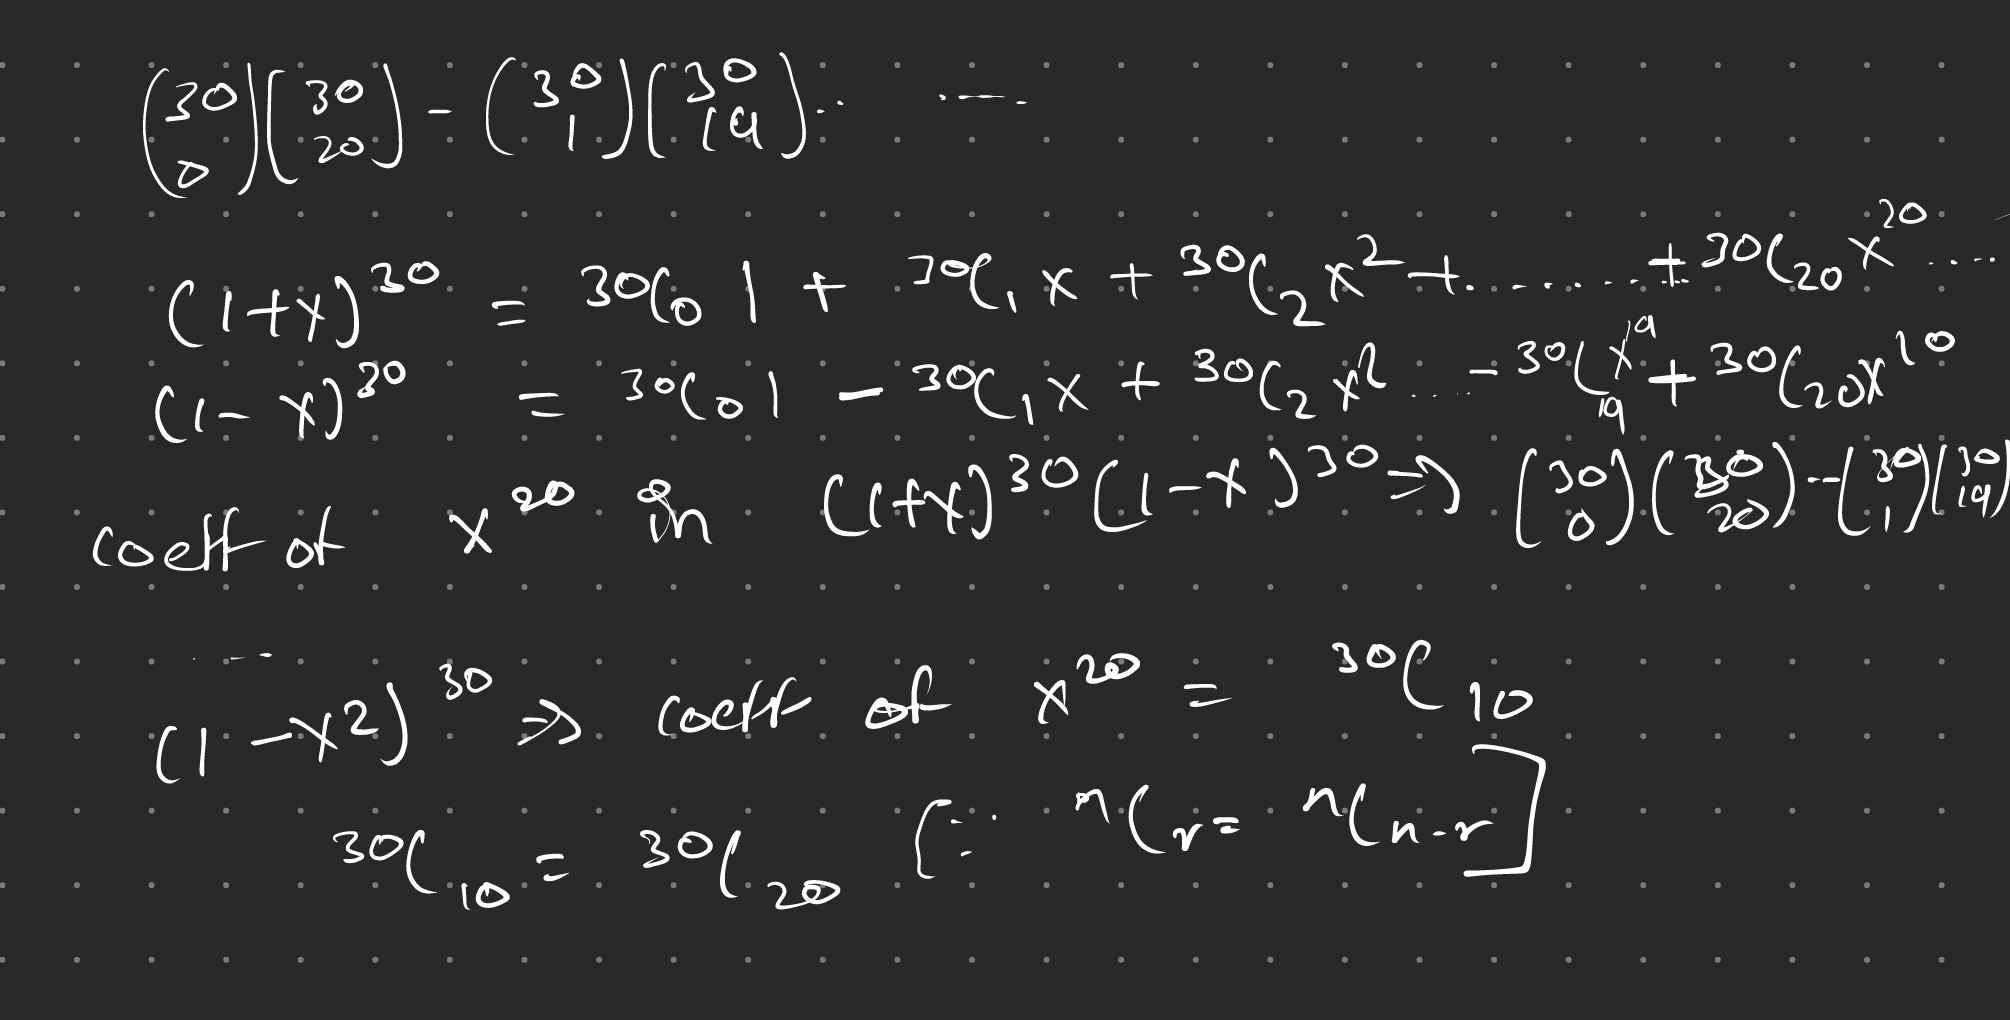 (30 0)(30 20) - (30 1)(30 19) .. ....
(1+x)^30 = 30C0 1 + 30C1 x + 30C2 x^2 + ........ + 30C20 x^20 ....
(1-x)^30 = 30C0 1 - 30C1 x + 30C2 x^2 .... - 30C19 x^19 + 30C20 x^10
coeff of x^20 in (1+x)^30 (1-x)^30 ⇒ (30 0)(30 20) - (30 1)(30 19)
....
(1-x^2)^30 ⇒ coeff of x^20 = 30C10
30C10 = 30C20 [∵ nCr = nCn-r]